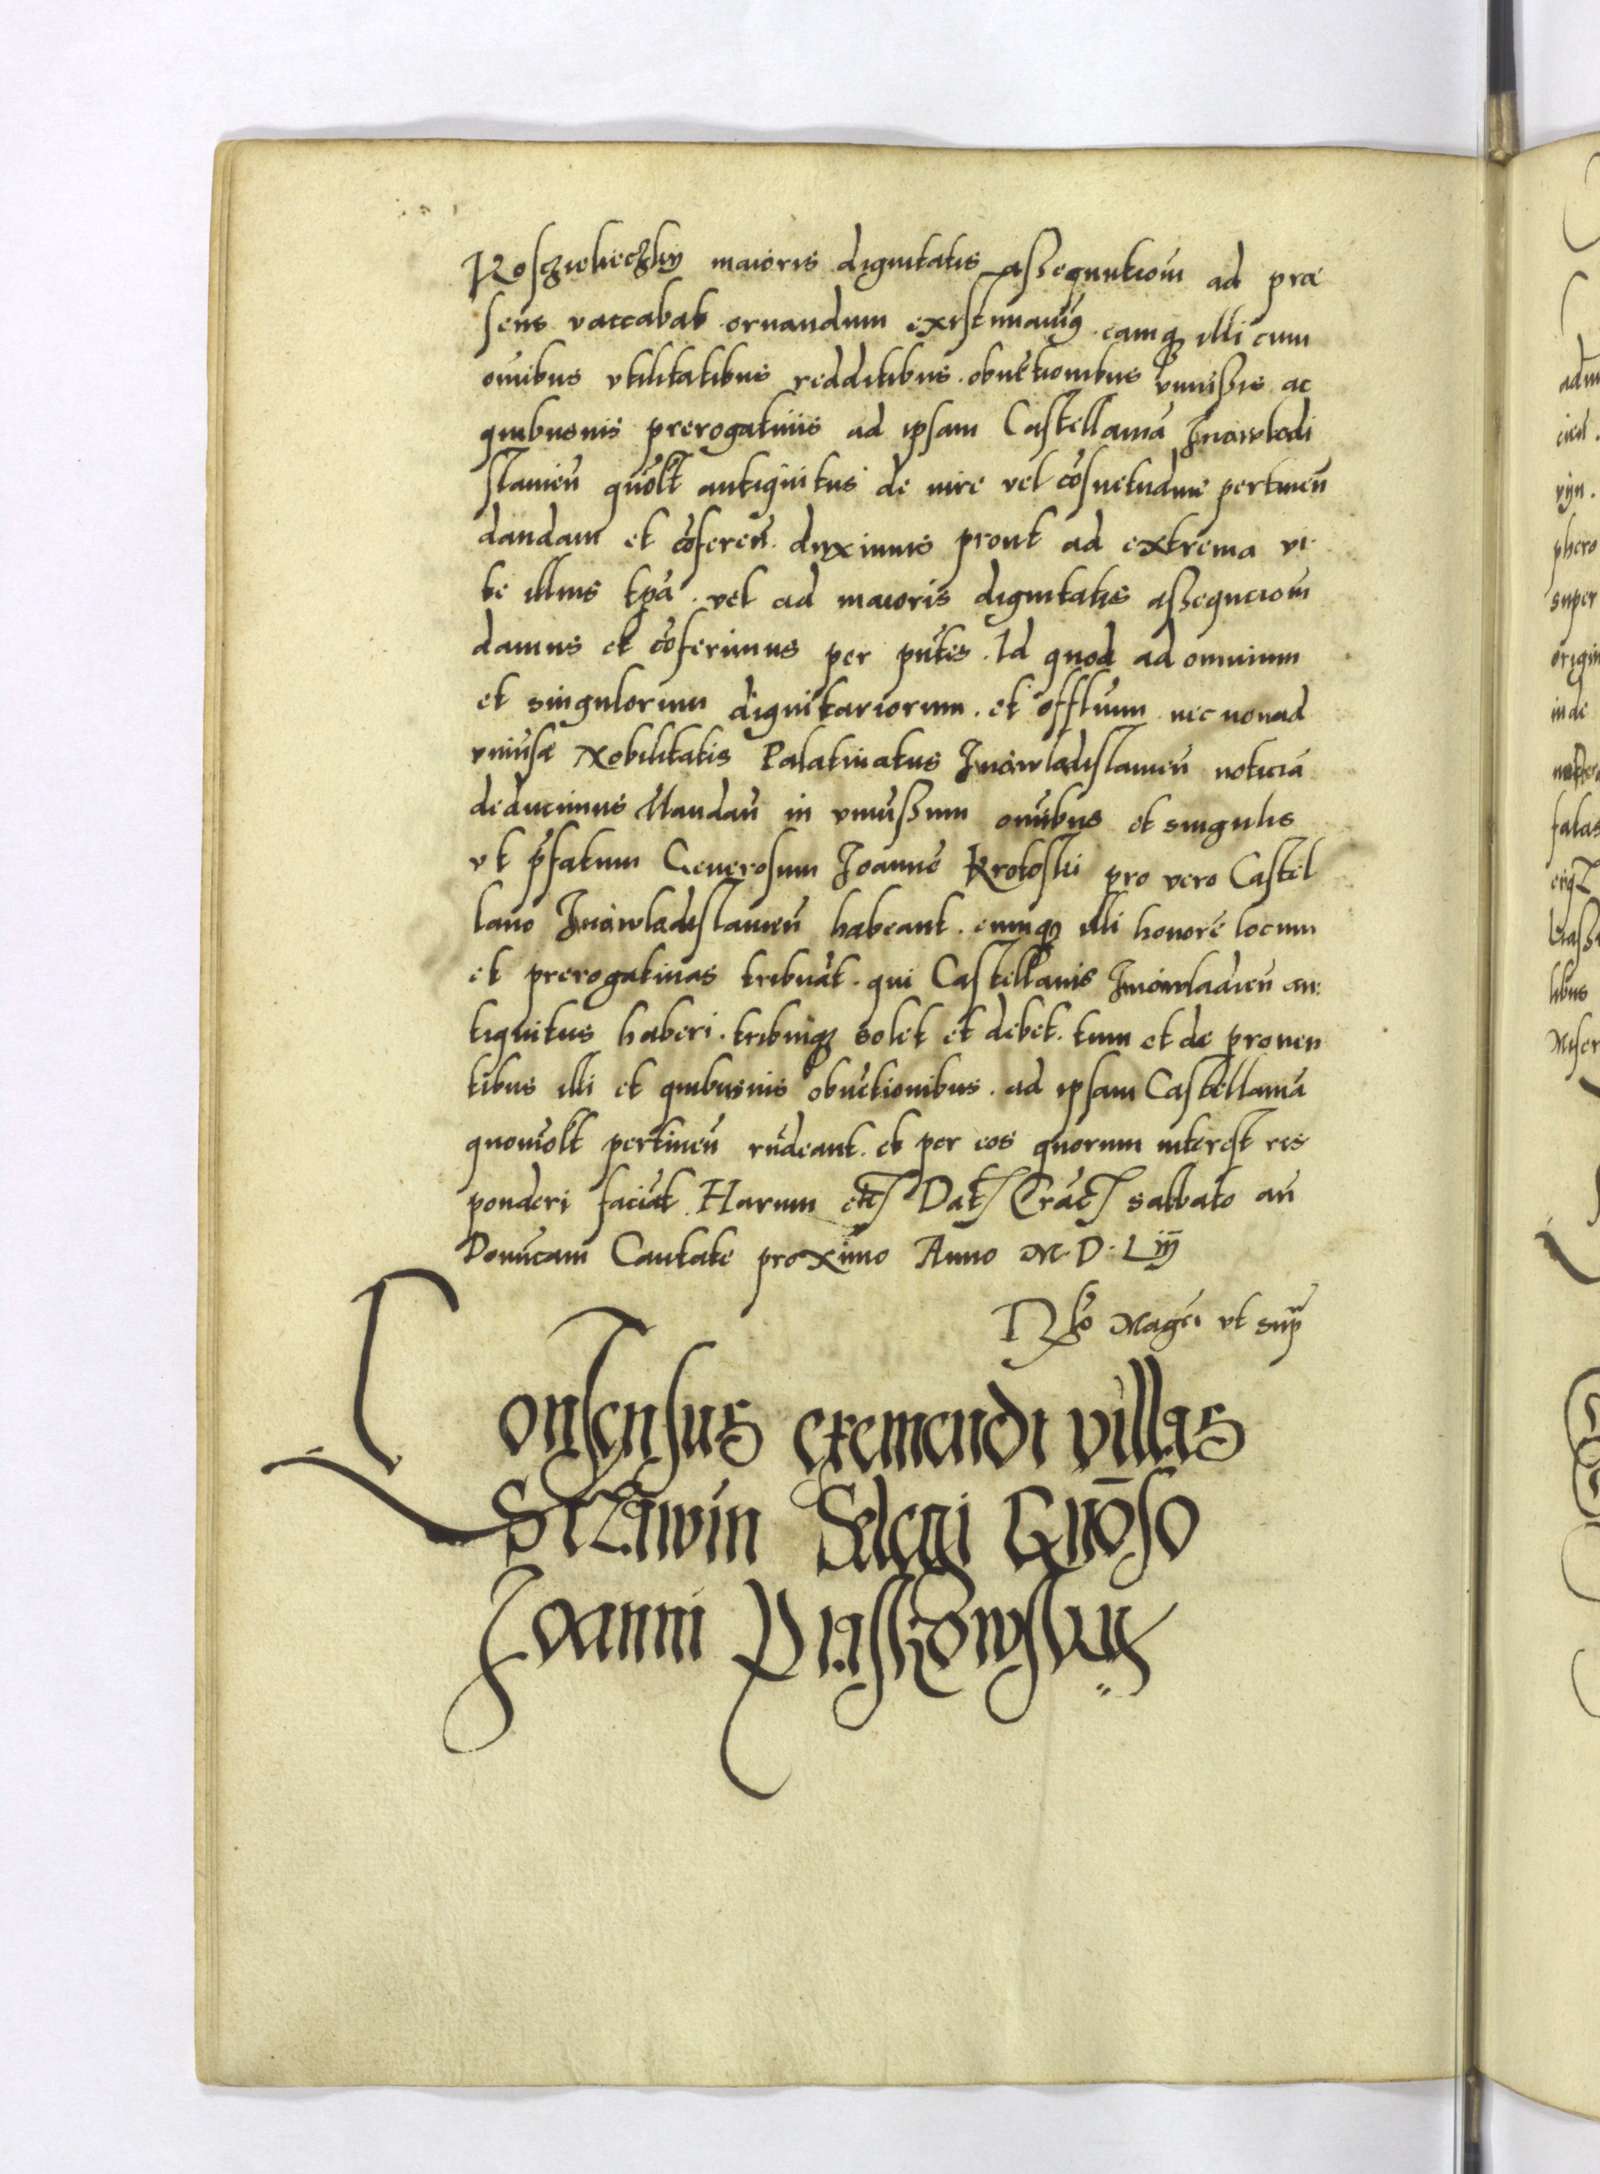 Kosczieliećzky maioris dignitatis asseqnutioni ad præ
sens vaccabat ornandum existimauimꝰ eamqꝫ illi cum
omibus vtilitatibus redditibus. obuētionibus vniuersis ac
quibusuis prerogatiuis ad ipsam Castellaniā Inowladi
slauieñ quōlt antiquitus de iure vel cōsuetudine pertineñ
dandam et cōfereñ. duximus prout ad extrema vi
te illius tpa. vel ad maioris dignitatis assequcioni
damus et cōferimus per pñtes. Id quod ad omnium
et singulorum dignitariorum. et offlium nec non ad
vniusæ Nobilitatis Palatinatus Inowladislauieñ noticiā
deducimus Mandañ in vniuersum omibus et singulis
vt p̃fatum Generosum Joannē Krotoski pro vero Castel
lano Inowladislauieñ habeant. eumqꝫ illi honorē locum
et prerogatiuas tribuāt. qui Castellanis Inowladieñ an
tiquitus haberi. tribuiqꝫ solet et debet. tum et de prouen
tibus illi et quibusuis obuētionibus. ad ipsam Castellaniā
quomōlt pertineñ rñdeant. et per eos quorum interest res
ponderi faciāt. Harum etc Dat Crac sabbato añ
Domicam Cantate proximo Anno M. D. Liii
Relō Magci vt supͣ
Consensus exemendi villas
Selegi Gnōso
Joanni